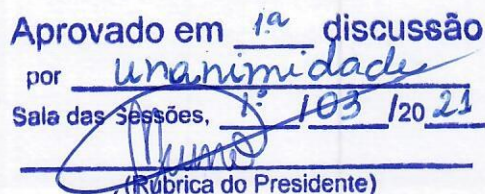 Aprovado em 1ª discussão
por unanimidade
Sala das Sessões, 1º / 03 / 20 21
(Rúbrica do Presidente)